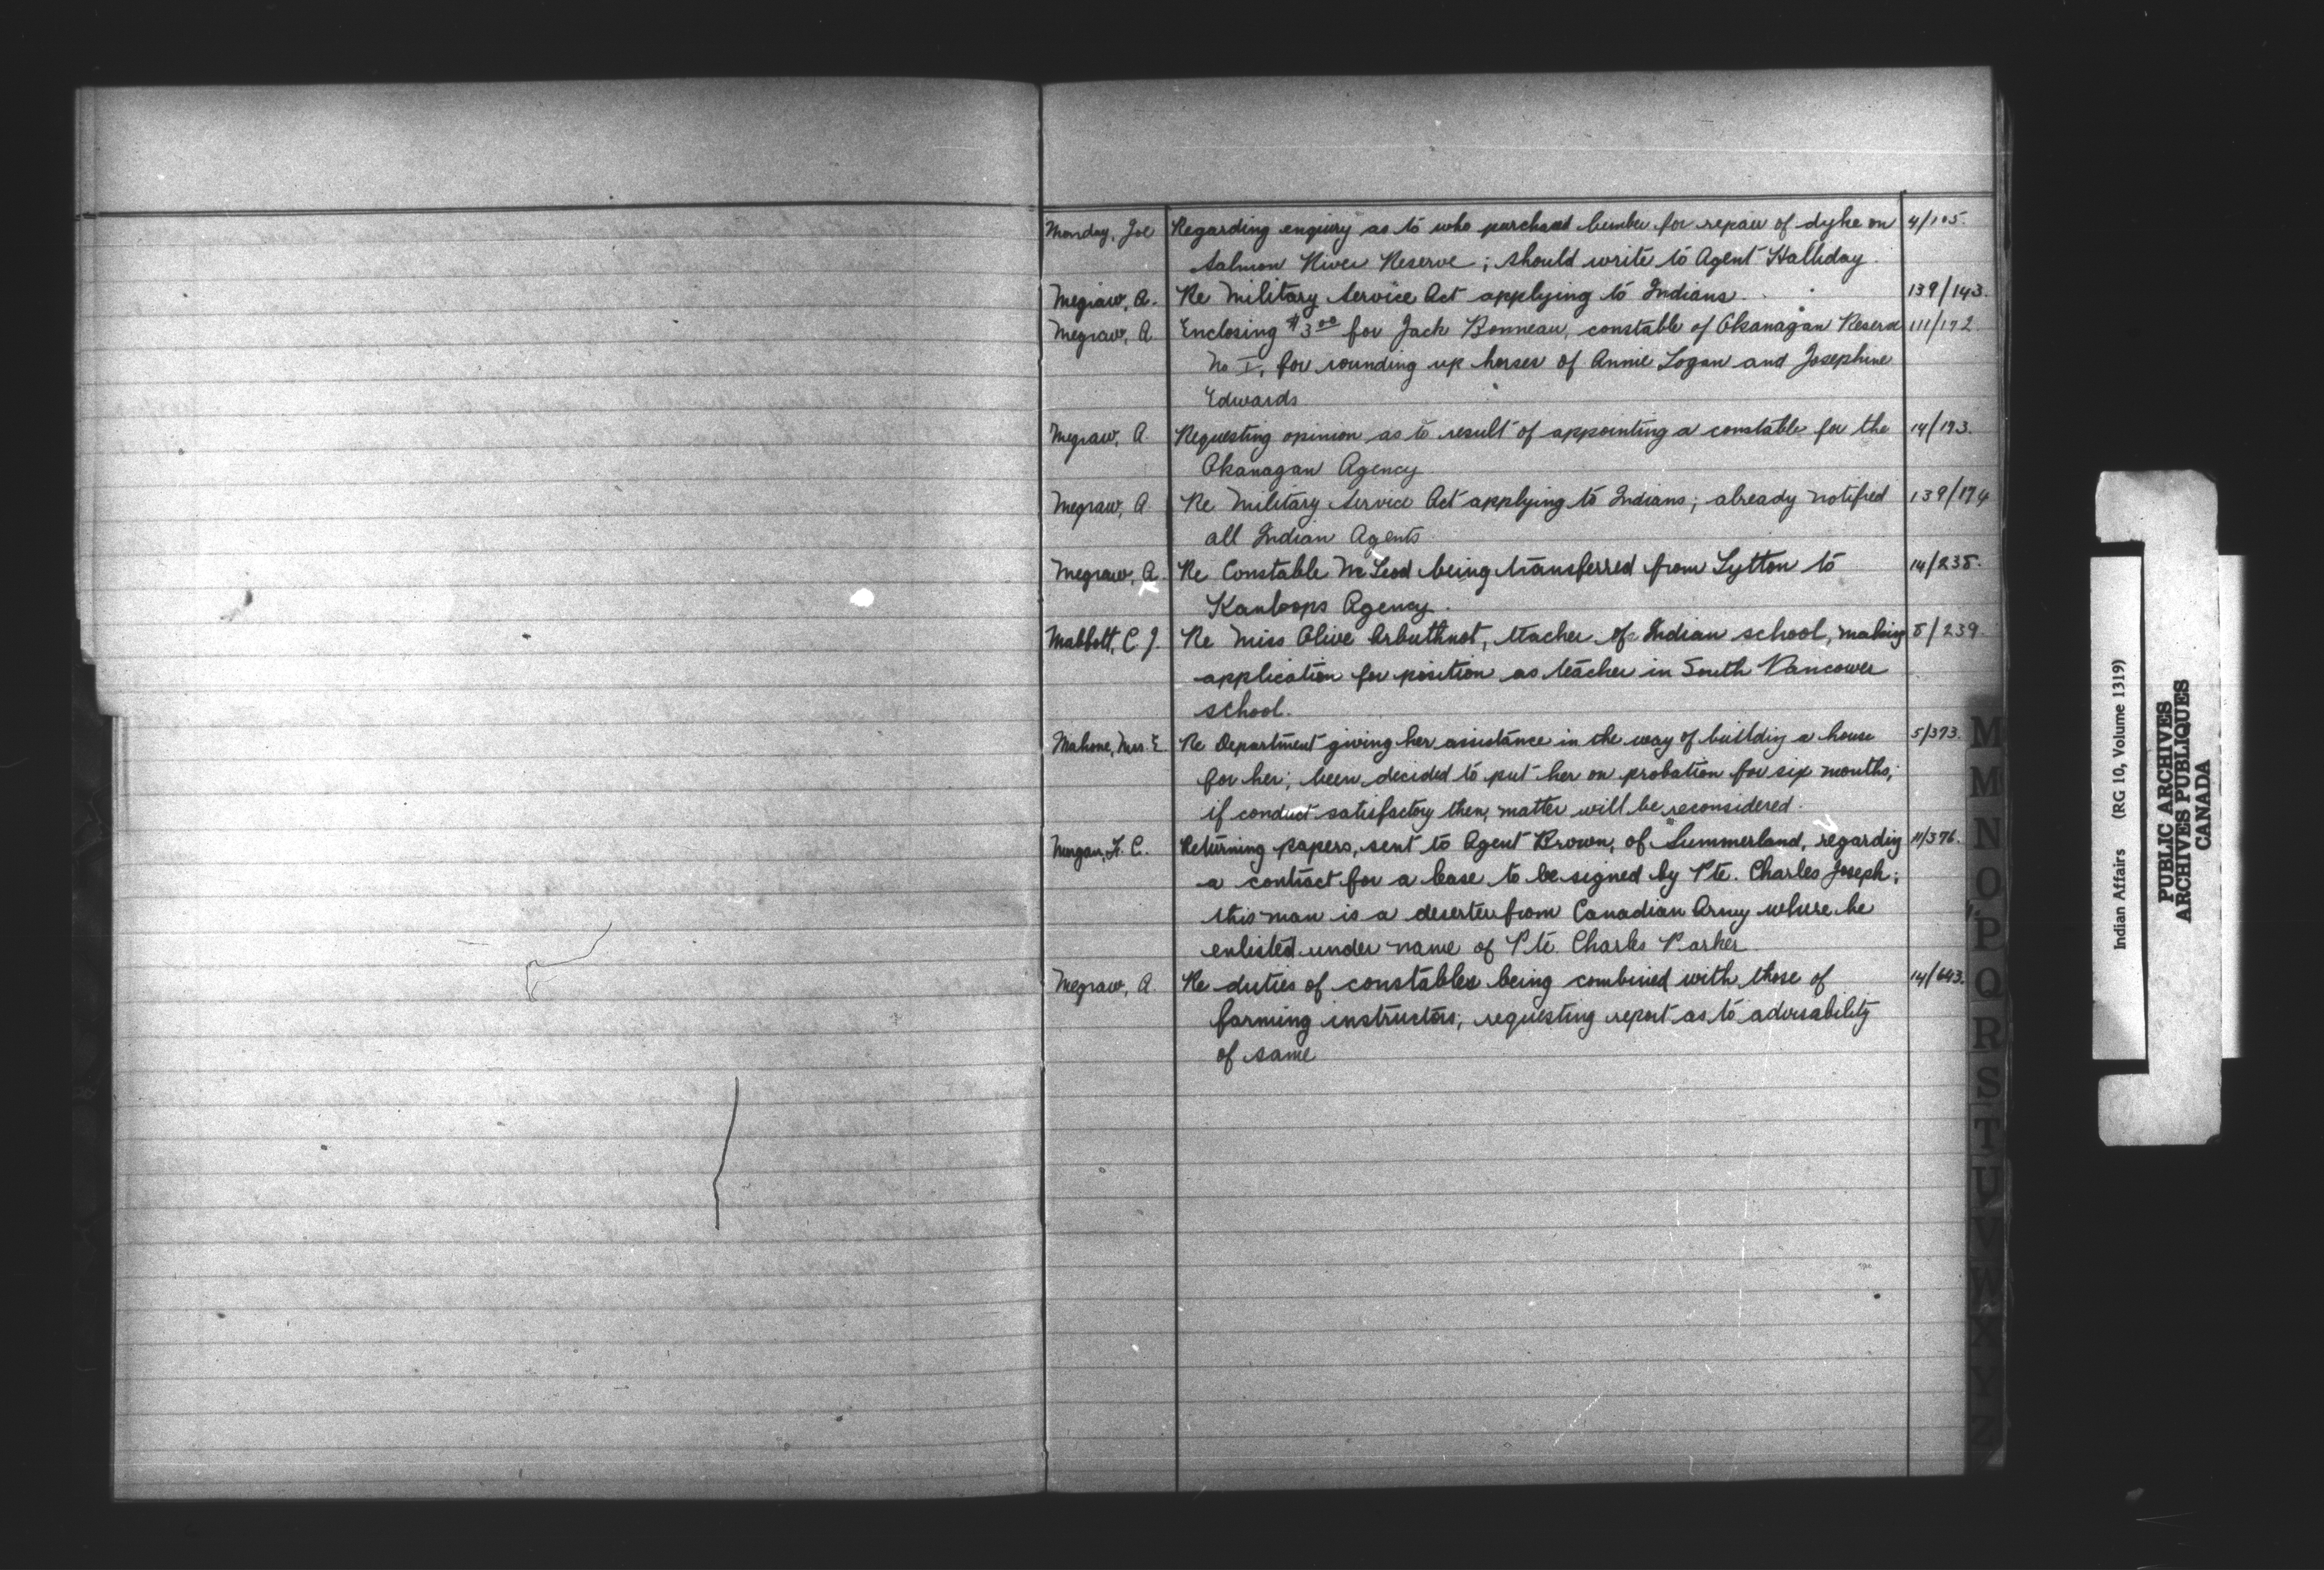 Monday, Joe Regarding enquiry as to who purchased lumber for repair of dyke on 4/105.
Salmon River Reserve; should write to Agent Halliday.
Megraw, A. Re Military Service Act applying to Indians. 139/143.
Megraw, A. Enclosing $3.00 for Jack Bonneau, constable of Okanagan Reserve 111/172.
No I, for rounding up horses of Annie Logan and Josephine
Edwards
Megraw, A. Requesting opinion as to result of appointing a constable for the 14/193.
Okanagan Agency
Megraw, A. Re Military Service Act applying to Indians; already notified 139/194
all Indian Agents
Megraw, A. Re Constable McLeod being transferred from Lytton to 14/238.
Kamloops Agency.
Mabbott, C. J. Re Miss Olive Arbuthnot, teacher of Indian school, making 8/239.
application for position as teacher in South Vancouver
school.
Mahone, Mrs. E. Re Department giving her assistance in the way of building a house 5/373.
for her; been decided to put her on probation for six months;
if conduct satisfactory then, matter will be reconsidered.
Morgan, F. C. Returning papers, sent to Agent Brown, of Summerland, regarding 11/376.
a contract for a lease to be signed by Pte. Charles Joseph;
this man is a deserter from Canadian Army where he
enlisted under name of Pte. Charles Parker
Megraw, A. Re duties of constables being combined with those of 14/643.
farming instructors; requesting report as to advisability
of same
M
M
N
O
P
Q
R
S
T
U
V
W
X
Y
Z
Indian Affairs (RG 10, Volume 1319)
PUBLIC ARCHIVES
ARCHIVES PUBLIQUES
CANADA